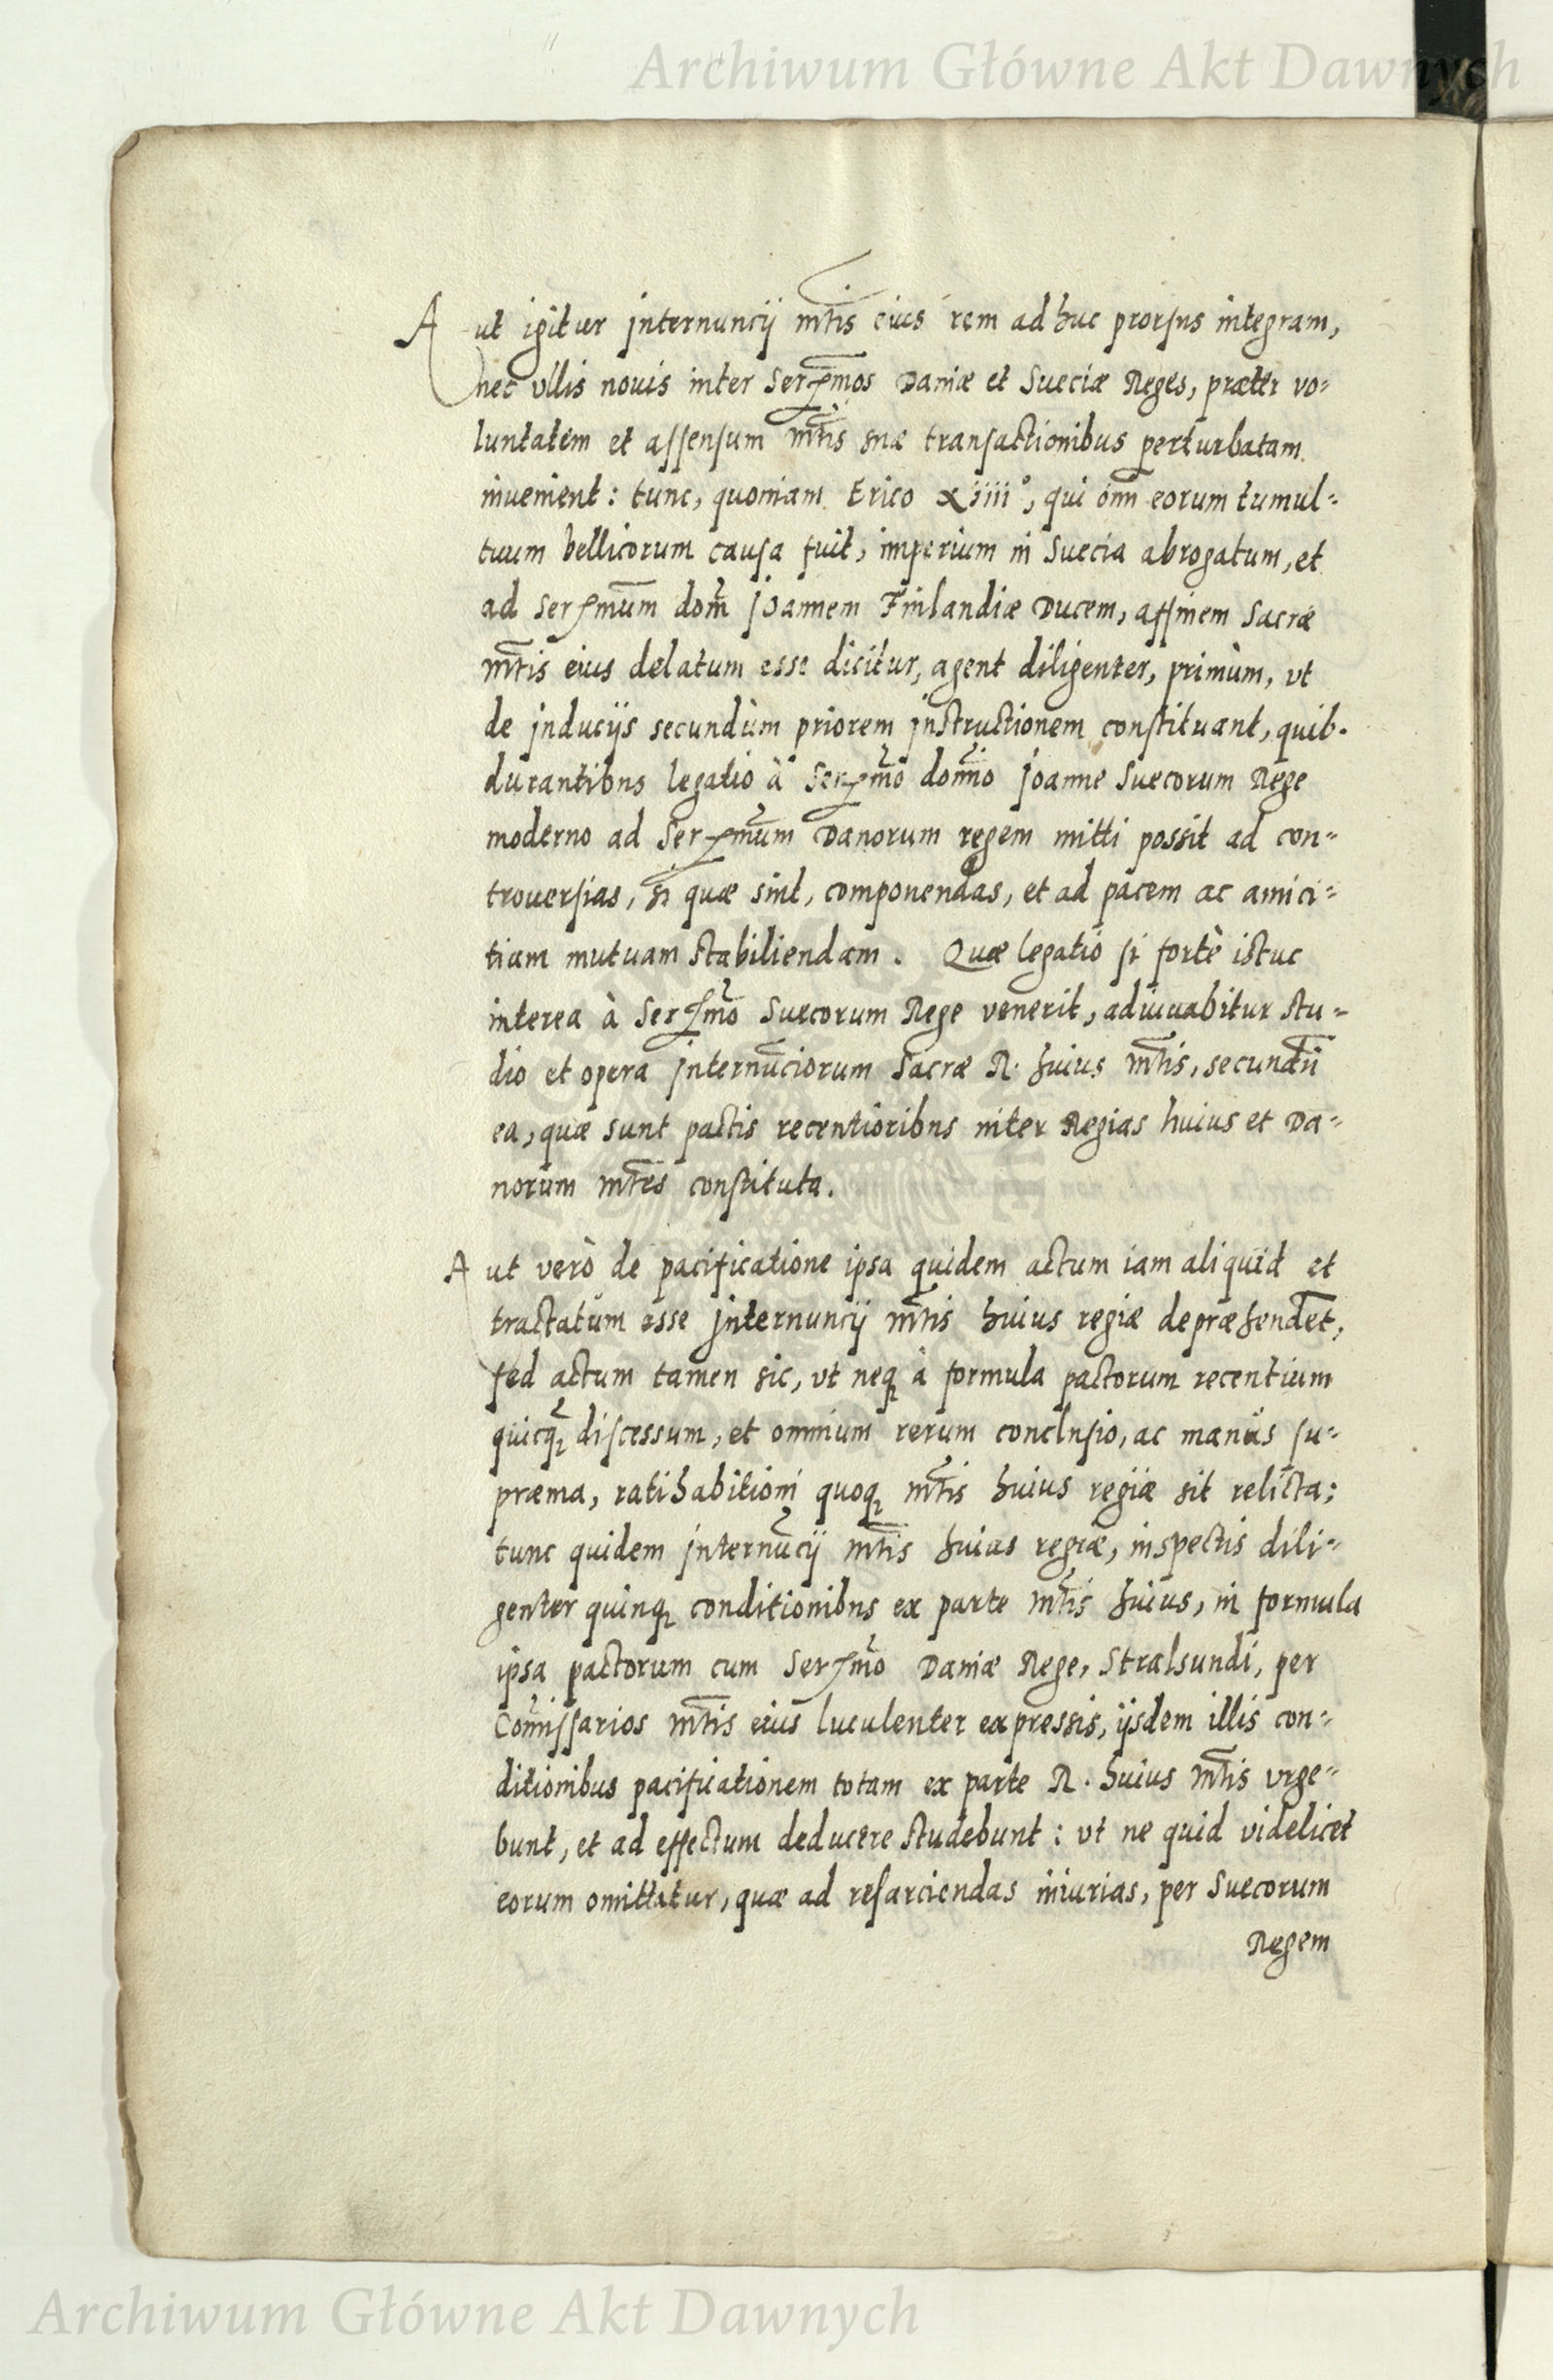 Archiwum Główne Akt Dawnych
Aut igitur internuncij mtis eius rem adhuc prorsus integram,
nec vllis nouis inter Sermos Daniæ et Sueciæ Reges, præter vo=
luntatem et assensum mtis suæ transactionibus perturbatam
inuenient: tunc, quoniam Erico xiiii°, qui omn eorum tumul=
tuum bellicorum causa fuit, imperium in Suecia abrogatum, et
ad Sermum dom Joannem Finlandiæ Ducem, affinem Sacræ
mtis eius delatum esse dicitur, agent diligenter, primùm, vt
de inducijs secundùm priorem instructionem constituant, quib.
durantibus legatio à Sermo domno Joanne Suecorum Rege
moderno ad Sermum Danorum regem mitti possit ad con=
trouersias, si quæ sint, componendas, et ad pacem ac amici=
tiam mutuam stabiliendam. Quæ legatio si fortè istuc
interea à Sermo Suecorum Rege venerit, adiuuabitur stu=
dio et opera internūciorum Sacræ R. huius mtis, secundū
ea, quæ sunt pactis recentioribus inter Regias huius et Da=
norum mtes constituta.
Aut verò de pacificatione ipsa quidem actum iam aliquid et
tractatum esse internuncij mtis huius regiæ depræhendēt,
sed actum tamen sic, vt neq à formula pactorum recentium
quicq discessum, et omnium rerum conclusio, ac manus su=
præma, ratihabitioni quoq mtis huius regiæ sit relicta;
tunc quidem internūcij mtis huius regiæ, inspectis dili=
genter quinq conditionibus ex parte mtis huius, in formula
ipsa pactorum cum Sermo Daniæ Rege, Stralsundi, per
Comissarios mtis eius luculenter expressis, ijsdem illis con=
ditionibus pacificationem totam ex parte R. huius mtis vrge=
bunt, et ad effectum deducere studebunt: vt ne quid videlicet
eorum omittatur, quæ ad resarciendas iniurias, per Suecorum
Regem
Archiwum Główne Akt Dawnych